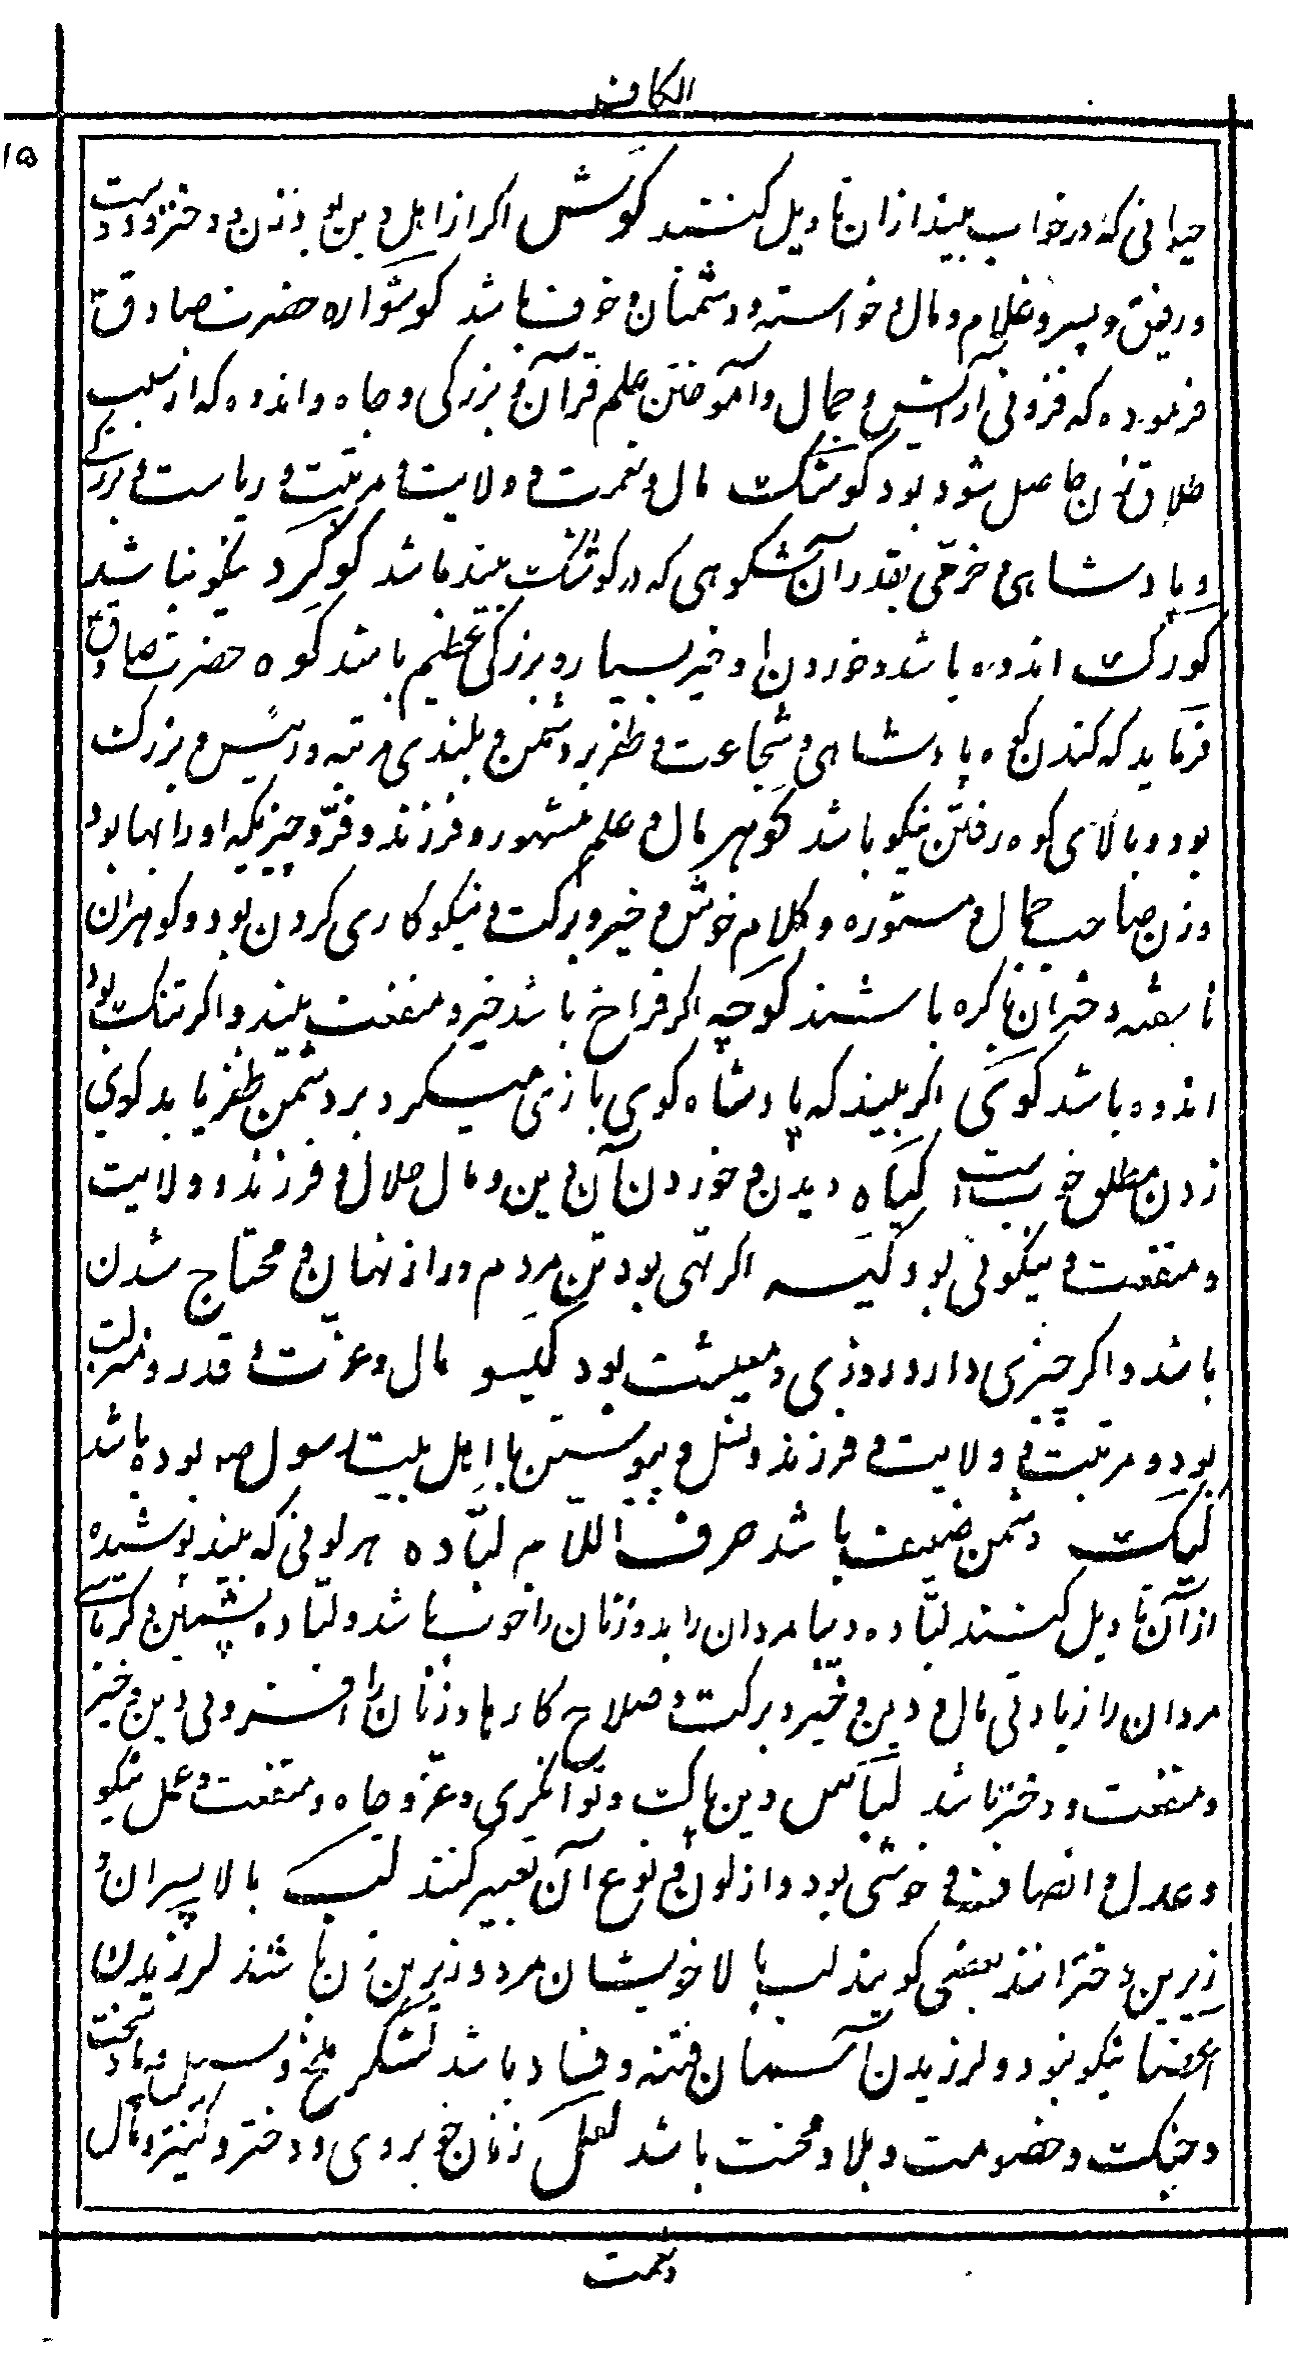 الکاف
۱۵
حیوانی که در خواب بیند از ان تاویل کنند کوش اکر از اهل دین بود زن و دختر و دوست
و رفیق و پسر و غلام و مال و خواسته و دشمنان و خوف باشد کوشواره حضرت صادق ع
فرموده که فزونی آرایش و جمال و آموختن علم قرآن و بزرکی و جاه و اندوه که از سبب
طلاق زن حاصل شود بود کوشک مال و نعمت و ولایت و مرتبت و ریاست و بزرکی
و پادشاهی و خرمی بقدر آن شکوهی که در کوشک بیند باشد کوکرد نیکو نباشد
کورک اندوه باشد و خوردن او خیر بسیار و بزرکی عظیم باشد کوه حضرت صادق ع
فرماید که کندن کوه پادشاهی و شجاعت و ظفر بر دشمن و بلندی مرتبه و رئیس و بزرک
بود و بالای کوه رفتن نیکو باشد کوهر مال و علم مشهور و فرزند و فرّ و چیزیکه او را بها بود
و زن صاحب جمال و مستوره و کلام خوش و خیر و برکت و نیکو کاری کردن بود و کوهران
نا سفته دختران باکره باشند کوچه اکر فراخ باشد خیر و منفعت بیند و اکر تنک بود
اندوه باشد کوی اکر بیند که پادشاه کوی بازی میکرد بر دشمن ظفر یابد کوی
زدن مطلق خوبست کیاه دیدن و خوردن آن دین و مال حلال و فرزند و ولایت
و منفعت و نیکوئی بود کیسه اکر تهی بود تن مردم و راز نهان و محتاج شدن
باشد و اکر چیزی دارد روزی و معیشت بود کیسو مال و عزّت و قدر و منزلت
بود و مرتبت و ولایت و فرزند و نسل و پیوستن با اهل بیت رسول ص بوده باشد
کیک دشمن ضعیف باشد حرف اللّام لبّاده هر لونی که بیند پوشیده
از آن تاویل کنند لبّاده دیبا مردان را بد و زنان را خوب باشد و لبّاده پشمین و کرباسی
مردان را زیادتی مال و دین و خیر و برکت و صلاح کارها و زنان را افزونی دین و خیر
و منفعت و دختر باشد لباس دین پاک و توانکری و عزّ و جاه و منفعت و عمل نیکو
و عدل و انصاف و خوشی بود و از لون و نوع آن تعبیر کنند لب بالا پسران و
زیرین دخترانند بعضی کویند لب بالا خویشان مرد و زیرین زن باشند لرزیدن
اعضا نیکو نبود و لرزیدن آسمان فتنه و فساد باشد لشکر ملخ و سیل و باد سخت
و جنک و خصومت و بلا و محنت باشد لعل زنان خوبروی و دختر و کنیز و مال
و نعمت